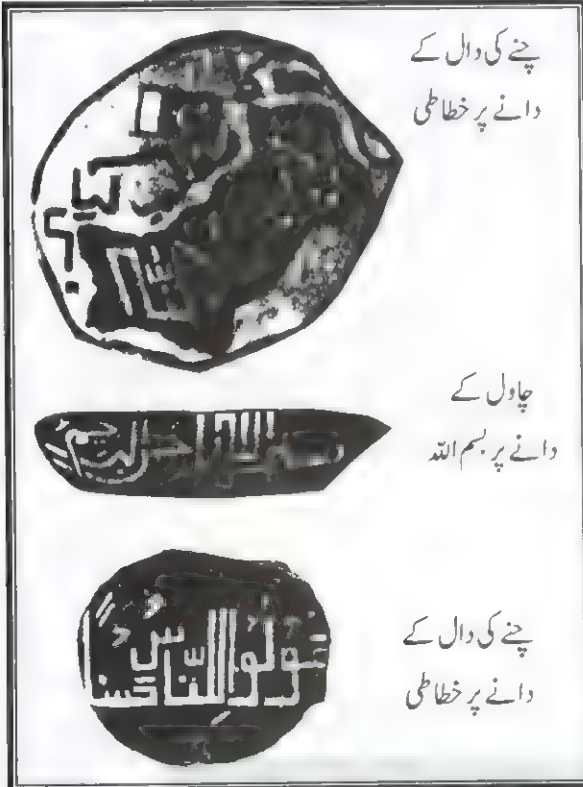 چنے کی دال کے
دانے پر خطاطی
چاول کے
دانے پر بسم اللہ
بسم اللہ الرحمن الرحیم
چنے کی دال کے
دانے پر خطاطی
قولوا للناس حسنا